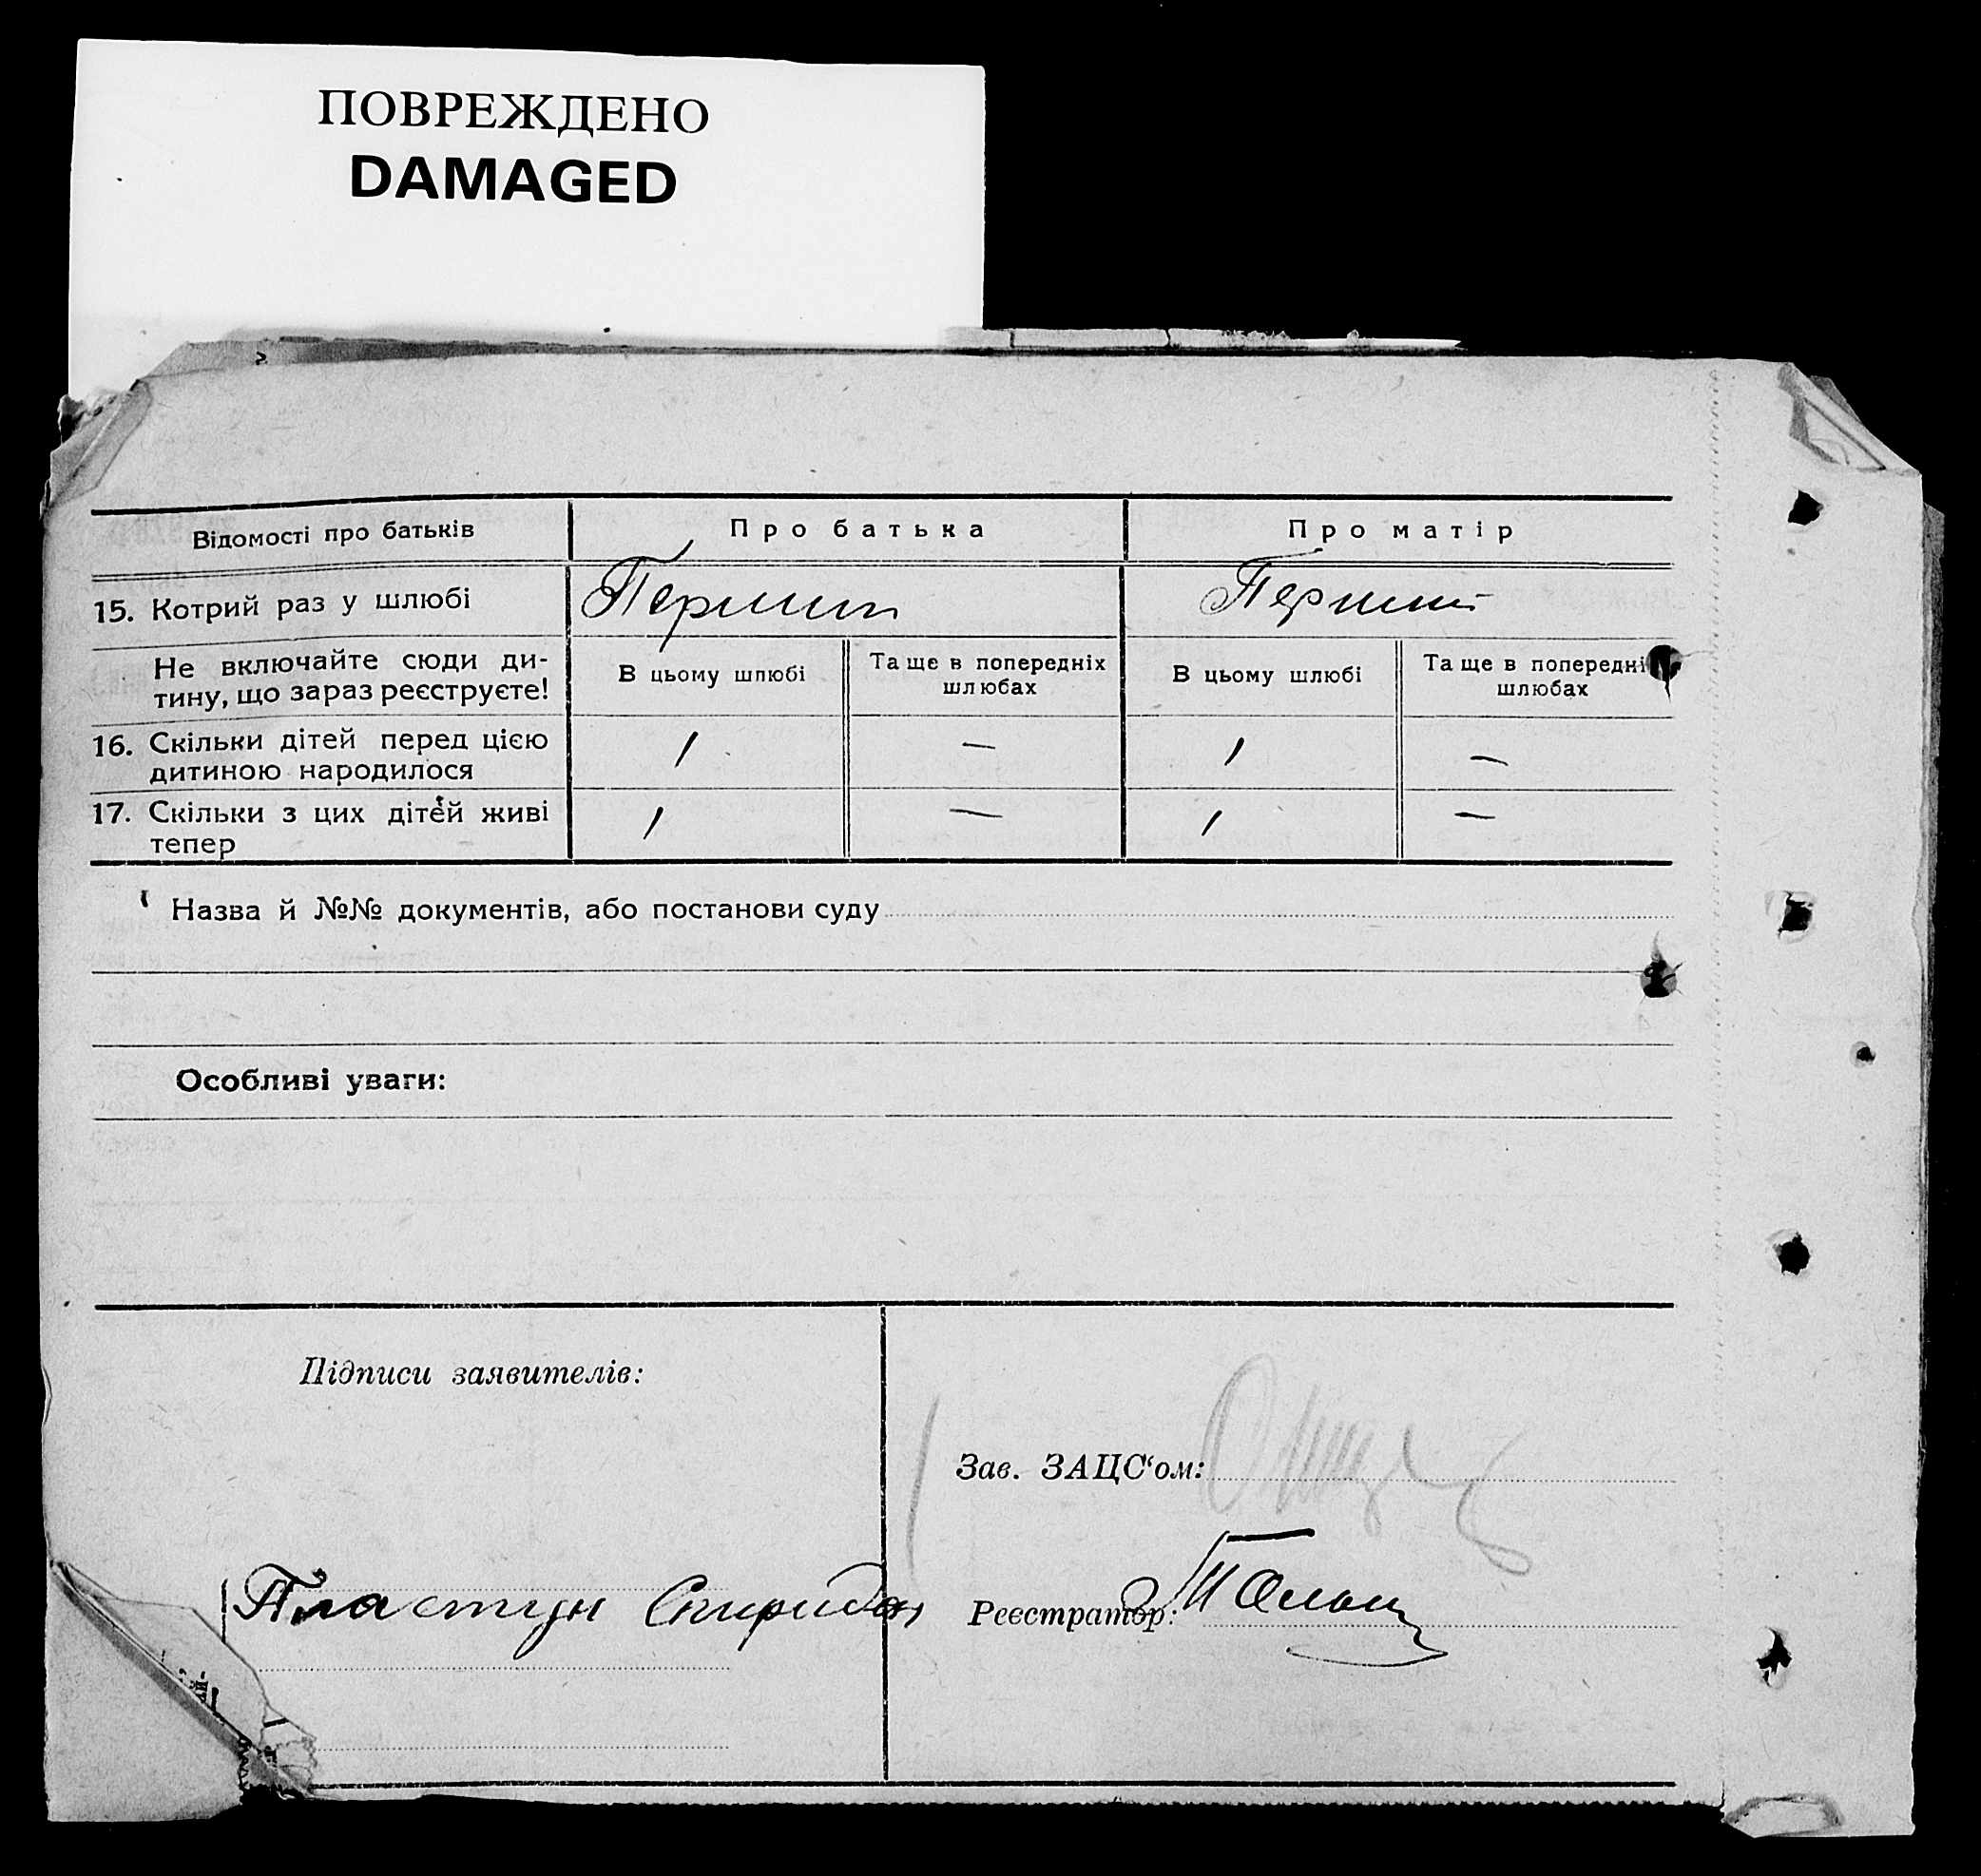 ПОВРЕЖДЕНО
DAMAGED
Відомості про батьків
Про батька
Про матір
15. Котрий раз у шлюбі
Перший
Перший
Не включайте сюди ди-
тину, що зараз реєструєте!
В цьому шлюбі
Та ще в попередніх
шлюбах
В цьому шлюбі
Та ще в попередні
шлюбах
16. Скільки дітей перед цією
дитиною народилося
1
—
1
—
17. Скільки з цих дітей живі
тепер
1
—
1
—
Назва й №№ документів, або постанови суду
Особливі уваги:
Підписи заявителів:
Зав. ЗАЦС‘ом:
Пластун Спиридон
Реєстратор: